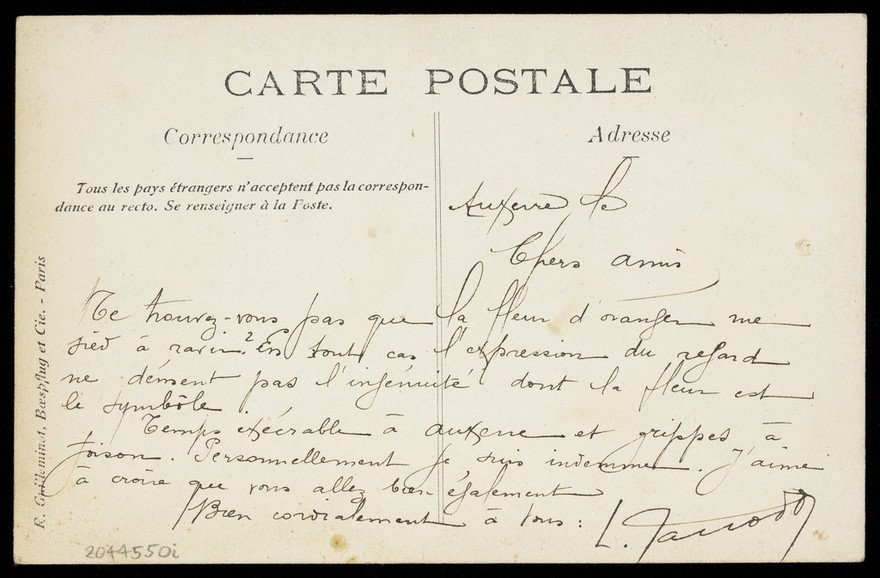 CARTE POSTALE
Correspondance
Adresse
Tous les pays étrangers n'acceptent pas la correspon-
dance au recto. Se renseigner à la Poste.
R. Guilleminot, Bœspflug et Cie. - Paris
Auxerre le
Chers amis
Ne trouvez-vous pas que la fleur d'oranger me
sied à ravir ? En tout cas l'expression du regard
ne dément pas l'ingénuité dont la fleur est
le symbole.
Temps exécrable à auxerre et grippes à
foison. Personnellement je suis indemne. J'aime
à croire que vous allez bien également
Bien cordialement à tous :
L.
2044550i